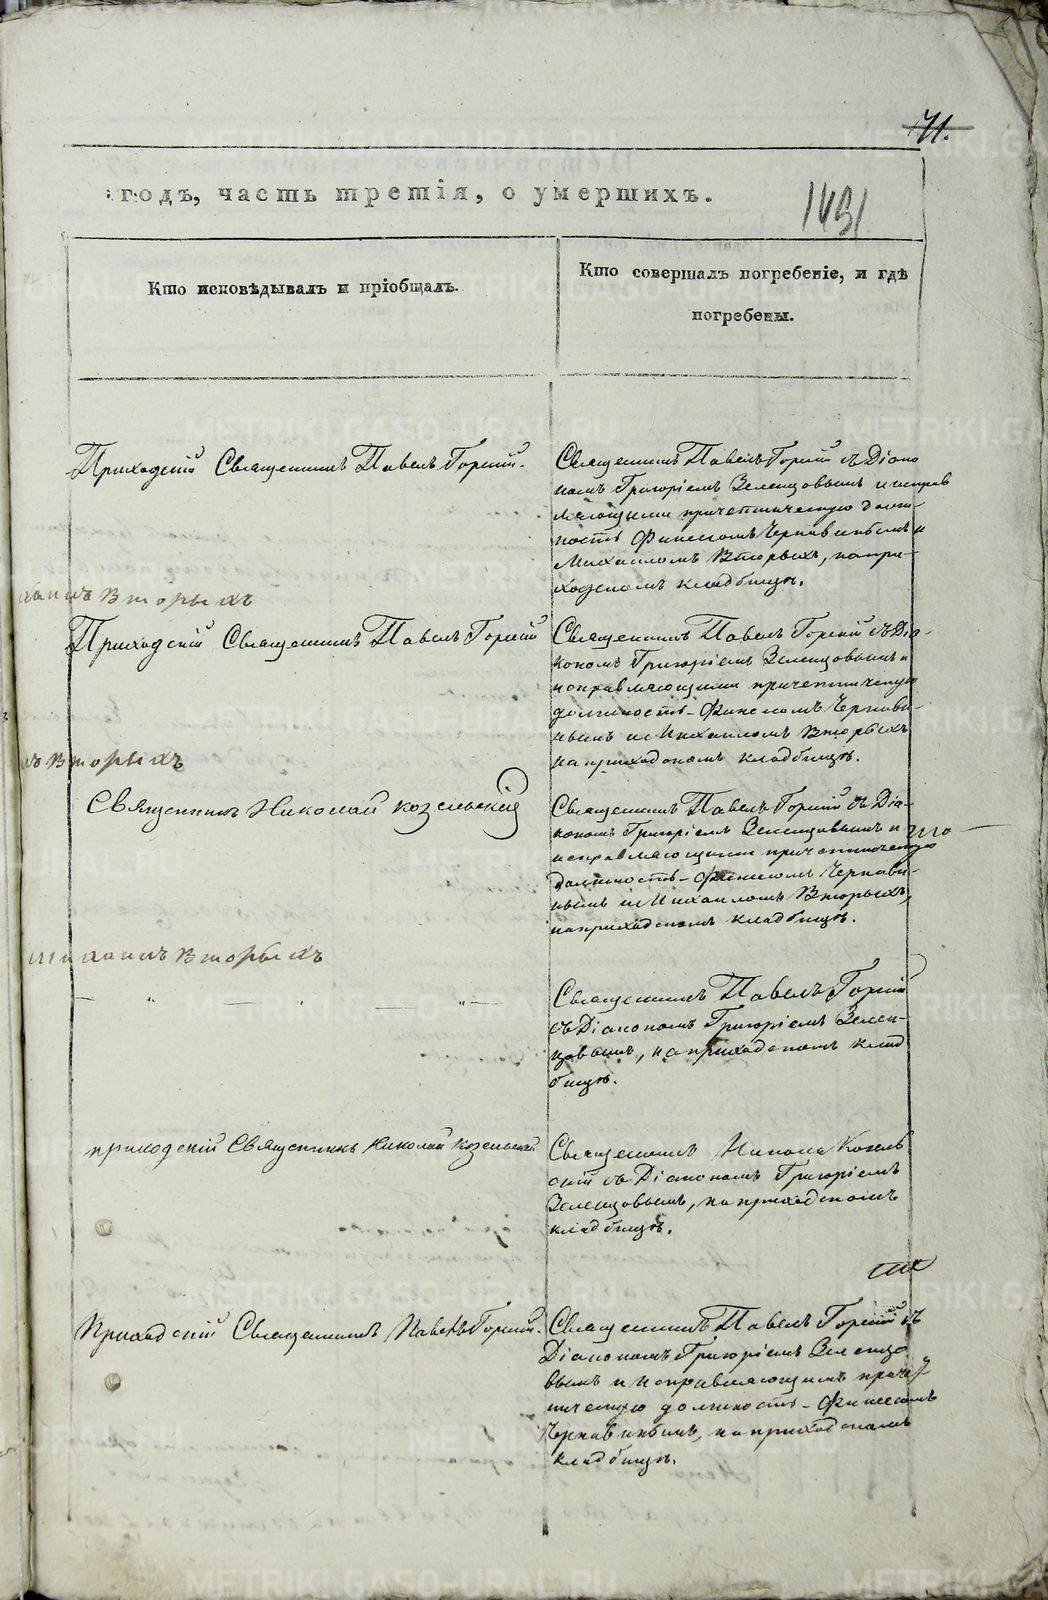 71.
годъ, часть третія, о умершихъ.
1431
Кто исповѣдывалъ и пріобщалъ.
Кто совершалъ погребеніе, и гдѣ
погребены.
Приходскій Священникъ Павелъ Горній.
Священникъ Павелъ Горній съ Діако
номъ Григоріемъ Зеленцовымъ и исправ
ляющими причетническую долж-
ность Финесомъ Чернавинымъ и
Михаиломъ Вторыхъ, на при-
ходскомъ кладбищѣ.
Вторыхъ
Приходскій Священникъ Павелъ Горній
Священникъ Павелъ Горній съ Діа-
кономъ Григоріемъ Зеленцовымъ и
исправляющими причетническую
должность Финесомъ Чернави-
нымъ и Михаиломъ Вторыхъ
на приходскомъ кладбищѣ.
Вторыхъ
Священникъ Николай Козельскій
Священникъ Павелъ Горній съ Діа-
кономъ Григоріемъ Зеленцовымъ и
исправляющими причетническую
должность Финесомъ Чернави-
нымъ и Михаиломъ Вторыхъ,
на приходскомъ кладбищѣ.
Вторыхъ
— „ — „ —
Священникъ Павелъ Горній
съ Діакономъ Григоріемъ Зелен-
цовымъ, на приходскомъ клад
бищѣ.
приходскій Священникъ Николай Козельскій
Священникъ Никола Козель
скій съ Діакономъ Григоріемъ
Зеленцовымъ, на приходскомъ
кладбищѣ.
Приходскій Священникъ Павелъ Горній.
Священникъ Павелъ Горній съ
Діакономъ Григоріемъ Зеленцо
вымъ и исправляющимъ причет-
ническую должность Финесомъ
Чернавинымъ, на приходскомъ
кладбищѣ.
METRIKI.GASO-URAL.RU